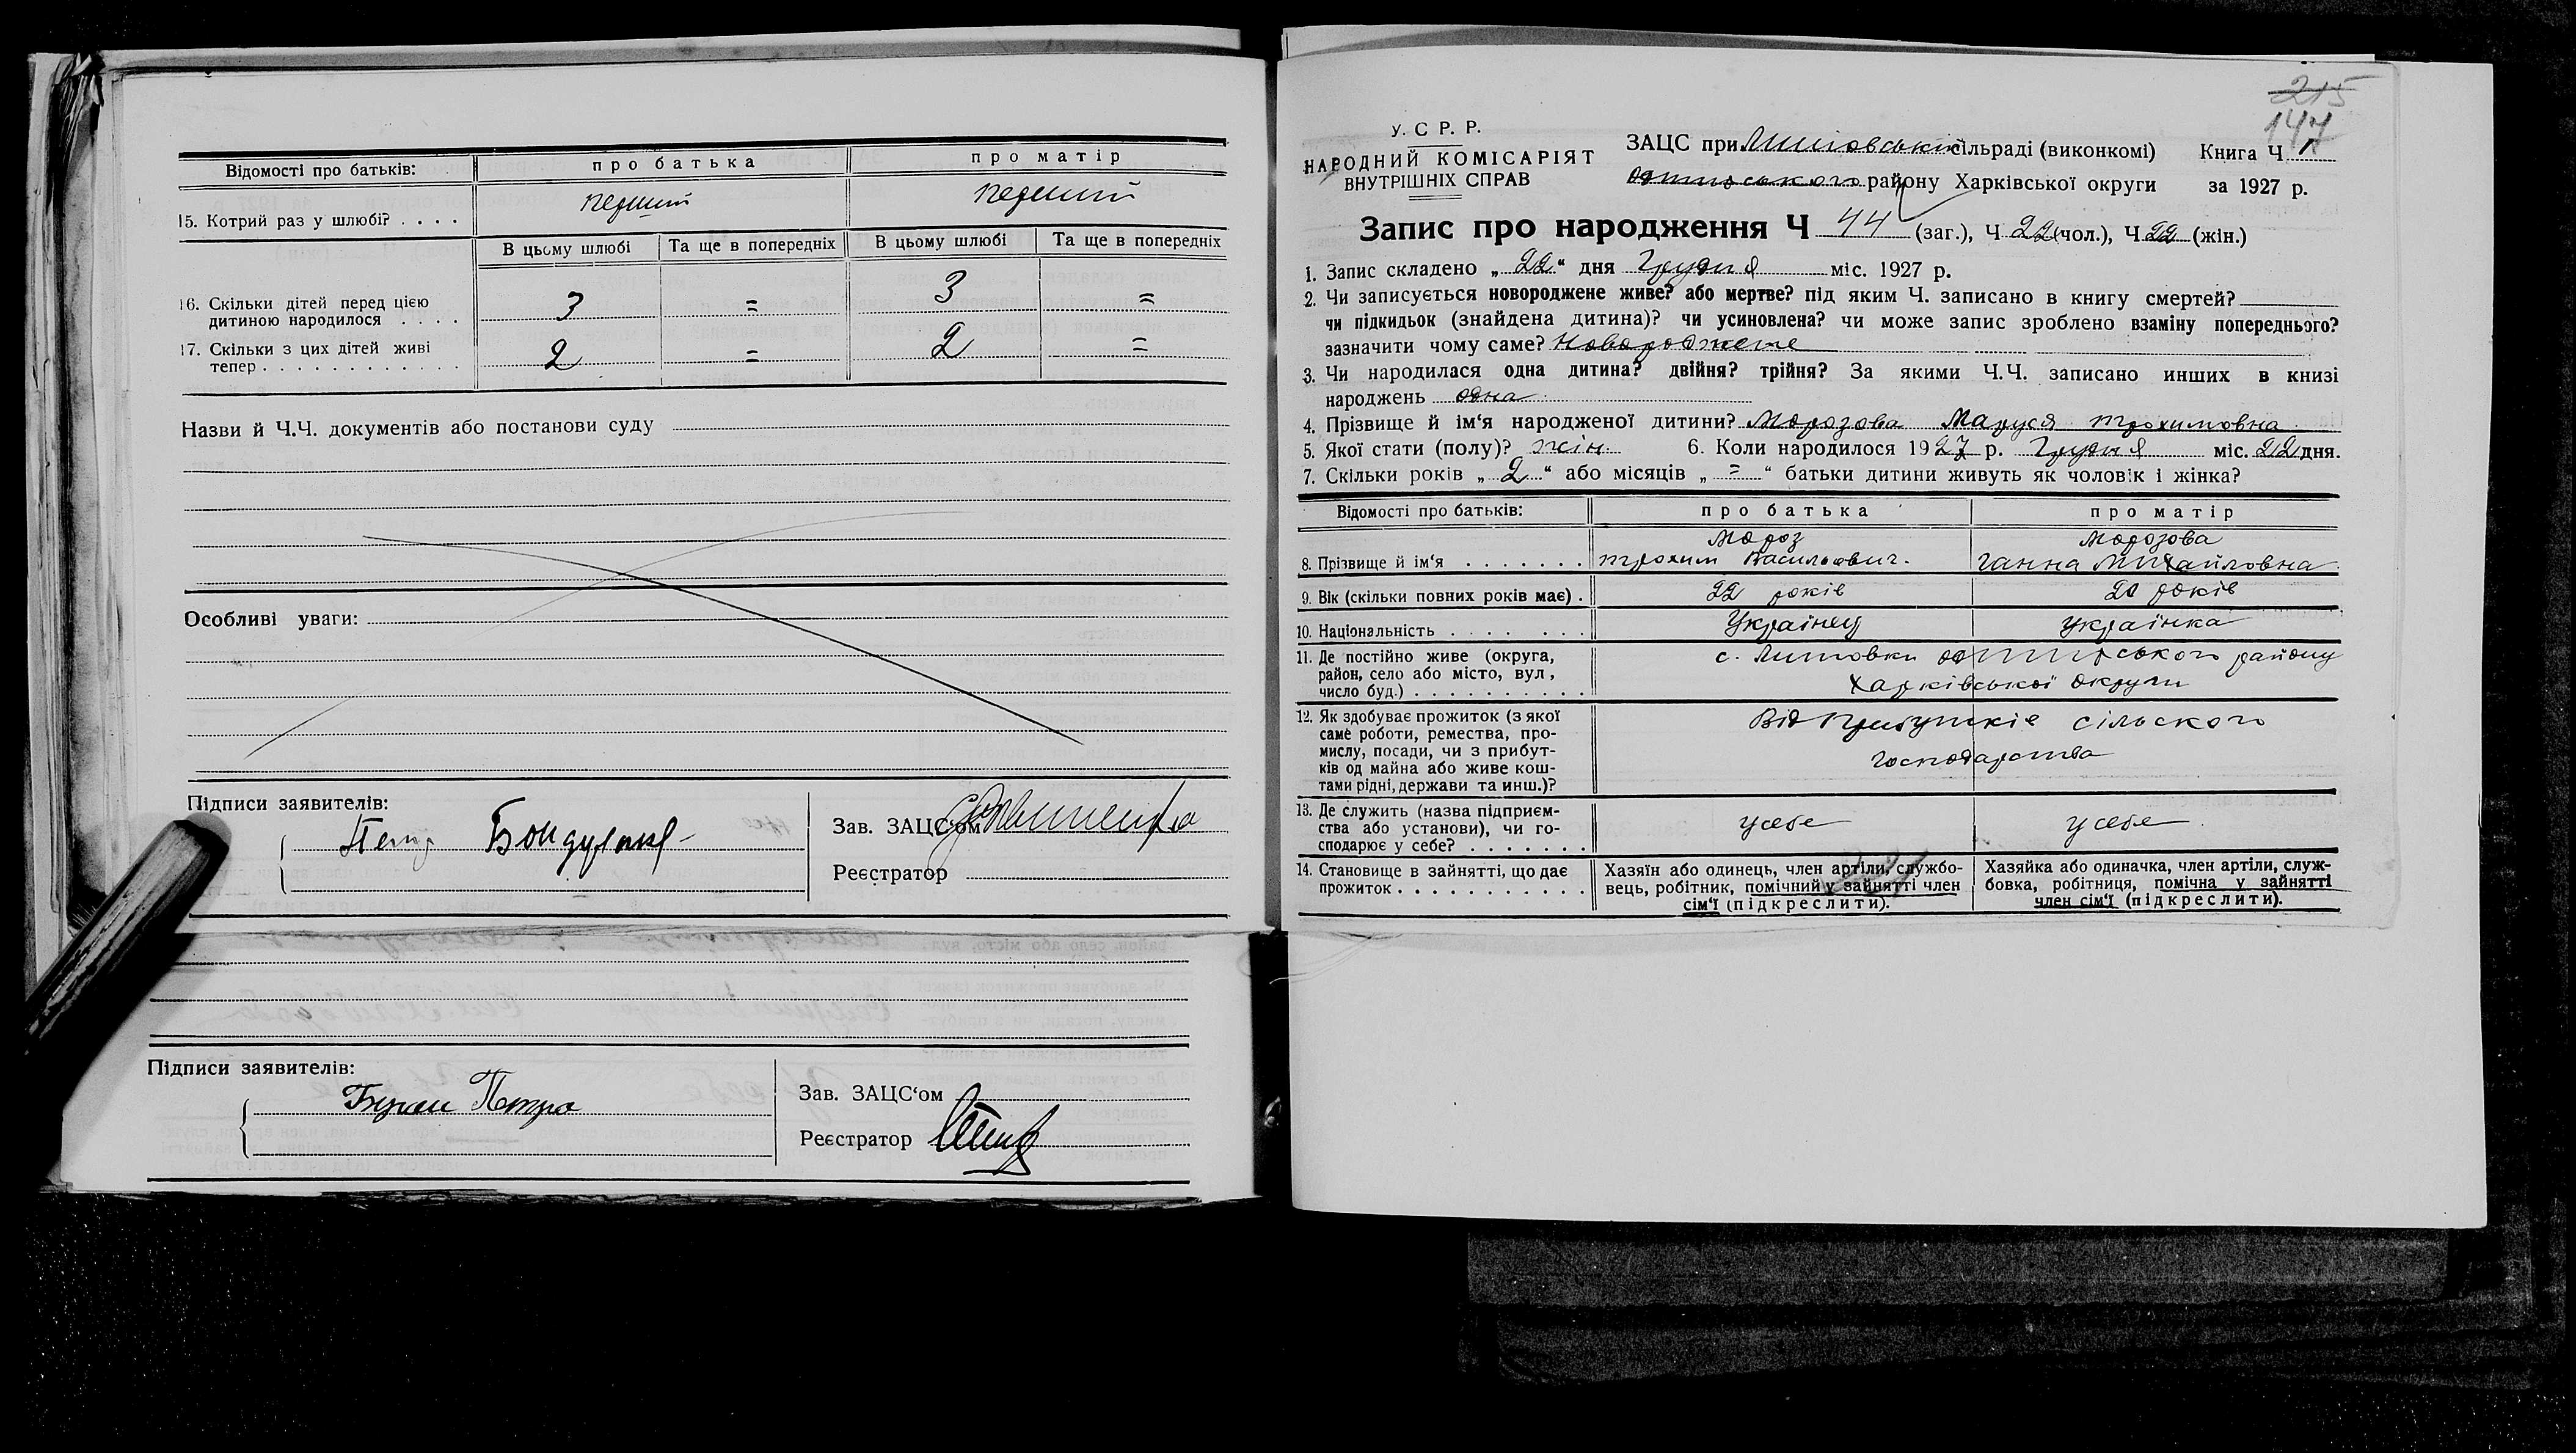 Відомості про батьків:
про батька
про матір
15. Котрий раз у шлюбі? . . . .
перший
перший
В цьому шлюбі
Та ще в попередніх
В цьому шлюбі
Та ще в попередніх
16. Скільки дітей перед цією
дитиною народилося . . . .
3
=
3
=
17. Скільки з цих дітей живі
тепер . . . . . . . . . . . .
2
=
2
=
Назви й Ч.Ч. документів або постанови суду
Особливі уваги:
Підписи заявителів:
Зав. ЗАЦС'ом
Реєстратор
Підписи заявителів:
Петро
Зав. ЗАЦС'ом
Реєстратор
215
147
У. С Р. Р.
НАРОДНИЙ КОМІСАРІЯТ
ВНУТРІШНІХ СПРАВ
ЗАЦС при сільраді (виконкомі)
району Харківської округи
Книга Ч 1
за 1927 р.
Запис про народження Ч 44 (заг.), Ч 22 (чол.), Ч 22 (жін.)
1. Запис складено „ 22 “ дня Грудня міс. 1927 р.
2. Чи записується новороджене живе? або мертве? під яким Ч. записано в книгу смертей?
чи підкидьок (знайдена дитина)? чи усиновлена? чи може запис зроблено взаміну попереднього?
зазначити чому саме? Новороджене
3. Чи народилася одна дитина? двійня? трійня? За якими Ч.Ч. записано инших в книзі
народжень одна
4. Прізвище й ім‘я народженої дитини? Морозова Маруся Трохимовна
5. Якої стати (полу)? жін. 6. Коли народилося 1927 р. Грудня міс. 22 дня.
7. Скільки років „ 2 “ або місяців „ = “ батьки дитини живуть як чоловік і жінка?
Відомості про батьків:
про батька
про матір
8. Прізвище й ім‘я . . . . . . .
Мороз
Трохим Васильович.
Морозова
Ганна Михайловна
9. Вік (скільки повних років має) .
22 років
20 років
10. Національність . . . . . . .
Українец
Українка
11. Де постійно живе (округа,
район, село або місто, вул,
число буд.) . . . . . . . . . .
с. району
Харківської округи
12. Як здобуває прожиток (з якої
саме роботи, ремества, про-
мислу, посади, чи з прибут-
ків од майна або живе кош-
тами рідні, держави та инш.)?
Від прибутків сільского
господарства
13. Де служить (назва підприєм-
ства або установи), чи го-
сподарює у себе? . . . . . . .
у себе
у себе
14. Становище в зайнятті, що дає
прожиток . . . . . . . . . . .
Хазяїн або одинець, член артіли, службо-
вець, робітник, помічний у зайнятті член
сім‘ї (підкреслити).
Хазяйка або одиначка, член артіли, служ-
бовка, робітниця, помічна у зайнятті
член сім‘ї (підкреслити).